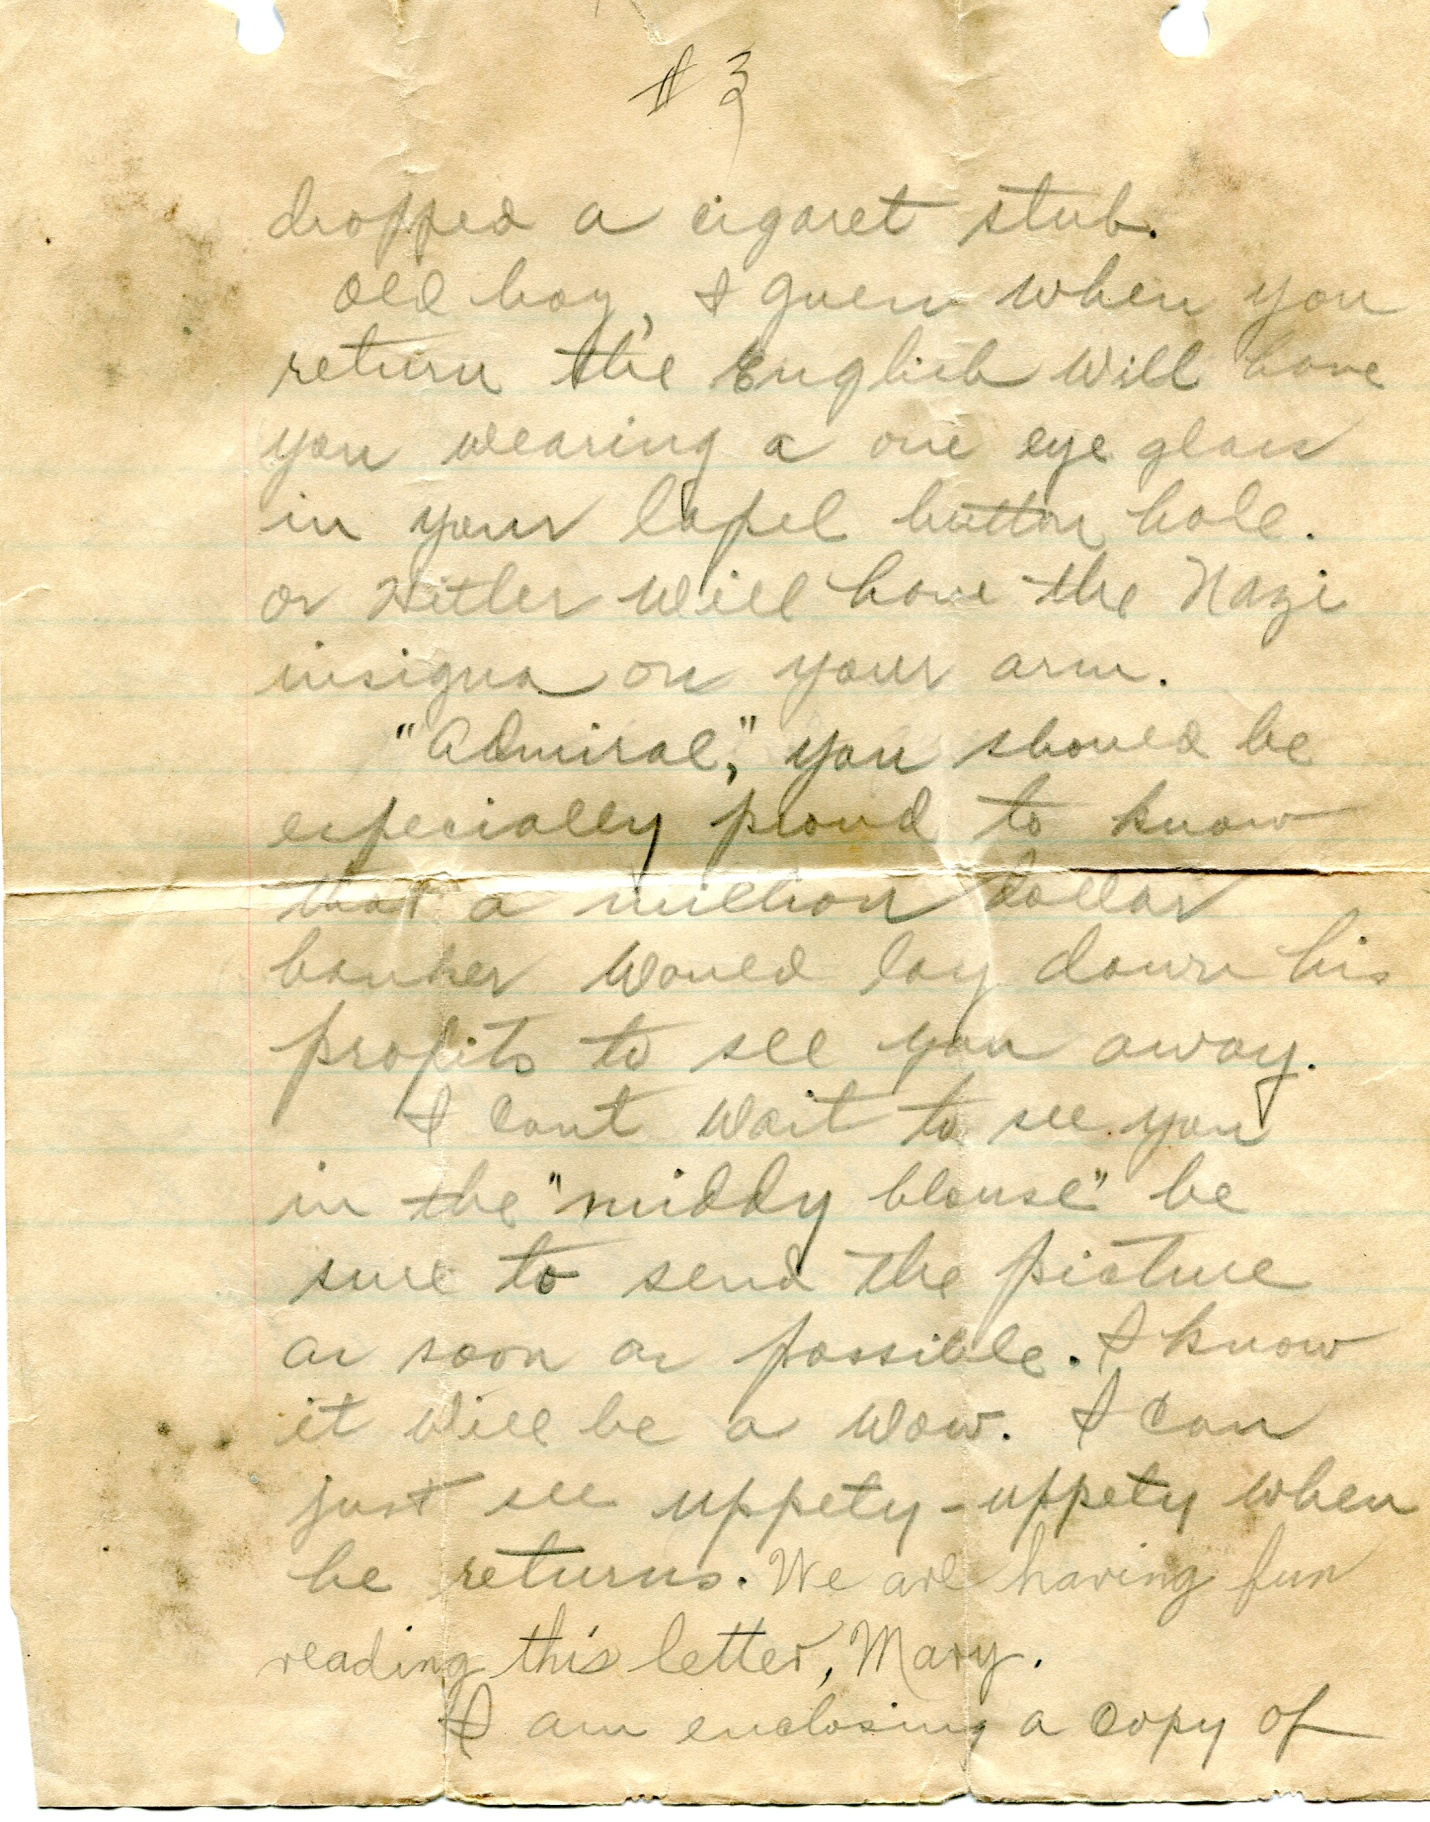 #3
dropped a cigaret stub.
Old boy, I guess when you
return the English will have
you wearing a one eye glass
in your lapel button hole.
or Hitler will have the Nazi
insigna on your arm.
"Admiral," you should be
especially proud to know
that a million dollar
banker would lay down his
profits to see you away.
I cant wait to see you
in the "middy blouse" be
sure to send the picture
as soon as possible. I know
it will be a wow. I can
just see uppety-uppety when
he returns. We are having fun
reading this letter, Mary.
I am enclosing a copy of